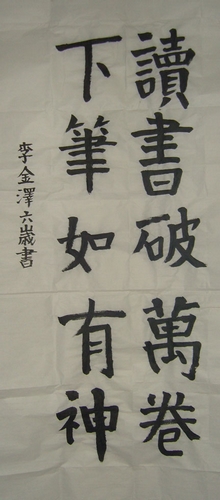 讀書破萬卷
下筆如有神
李金澤六歲書